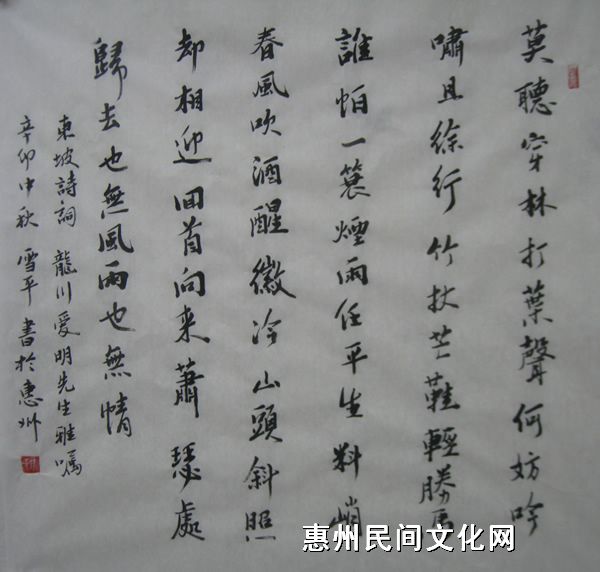 莫聽穿林打葉聲何妨吟
嘯且徐行竹杖芒鞋輕勝馬
誰怕一蓑煙雨任平生料峭
春風吹酒醒徽冷山頭斜照
却相迎回首向来蕭瑟處
歸去也無風雨也無情
東坡詩詞 龍川爱明先生雅嘱
辛卯中秋 雪平書於惠州
惠州民间文化网